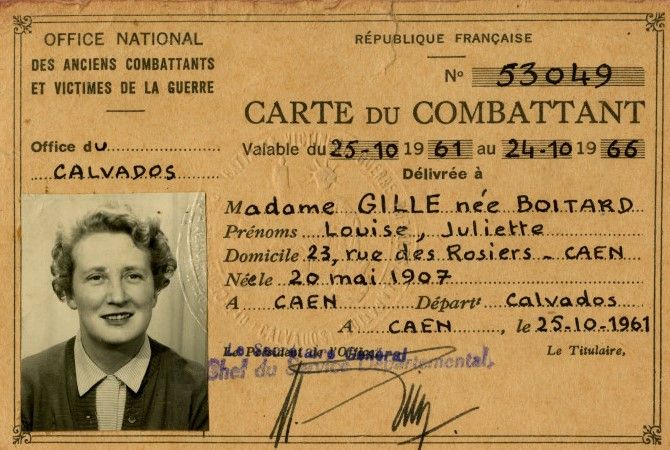 OFFICE NATIONAL
DES ANCIENS COMBATTANTS
ET VICTIMES DE LA GUERRE
Office du
CALVADOS
RÉPUBLIQUE FRANÇAISE
No 53049
CARTE DU COMBATTANT
Valable du 25-10 1961 au 24-10 1966
Délivrée à
Madame GILLE née BOITARD
Prénoms Louise, Juliette
Domicile 23, rue des Rosiers - CAEN
Née le 20 mai 1907
A CAEN Départt Calvados
A CAEN, le 25-10-1961
Le Secrétaire Général
Le Titulaire,
Chef du Service Départemental,